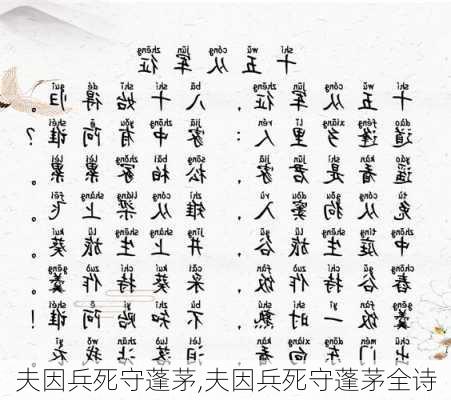 shí wǔ cóng jūn zhēng
十五从军征
shí wǔ cóng jūn zhēng bā shí shǐ dé guī
十五从军征，八十始得归。
dào féng xiāng lǐ rén jiā zhōng yǒu ā shéi
道逢乡里人：家中有阿谁？
yáo kàn shì jūn jiā sōng bǎi zhǒng lěi lěi
遥看是君家，松柏冢累累。
tù cóng gǒu dòu rù zhì cóng liáng shàng fēi
兔从狗窦入，雉从梁上飞。
zhōng tíng shēng lǚ gǔ jǐng shàng shēng lǚ kuí
中庭生旅谷，井上生旅葵。
chōng gǔ chí zuò fàn cǎi kuí chí zuò gēng
舂谷持作饭，采葵持作羹。
gēng fàn yì shí shú bù zhī yí ā shéi
羹饭一时熟，不知贻阿谁！
chū mén dōng xiàng kàn lèi luò zhān wǒ yī
出门东向看，泪落沾我衣
夫因兵死守蓬茅,夫因兵死守蓬茅全诗